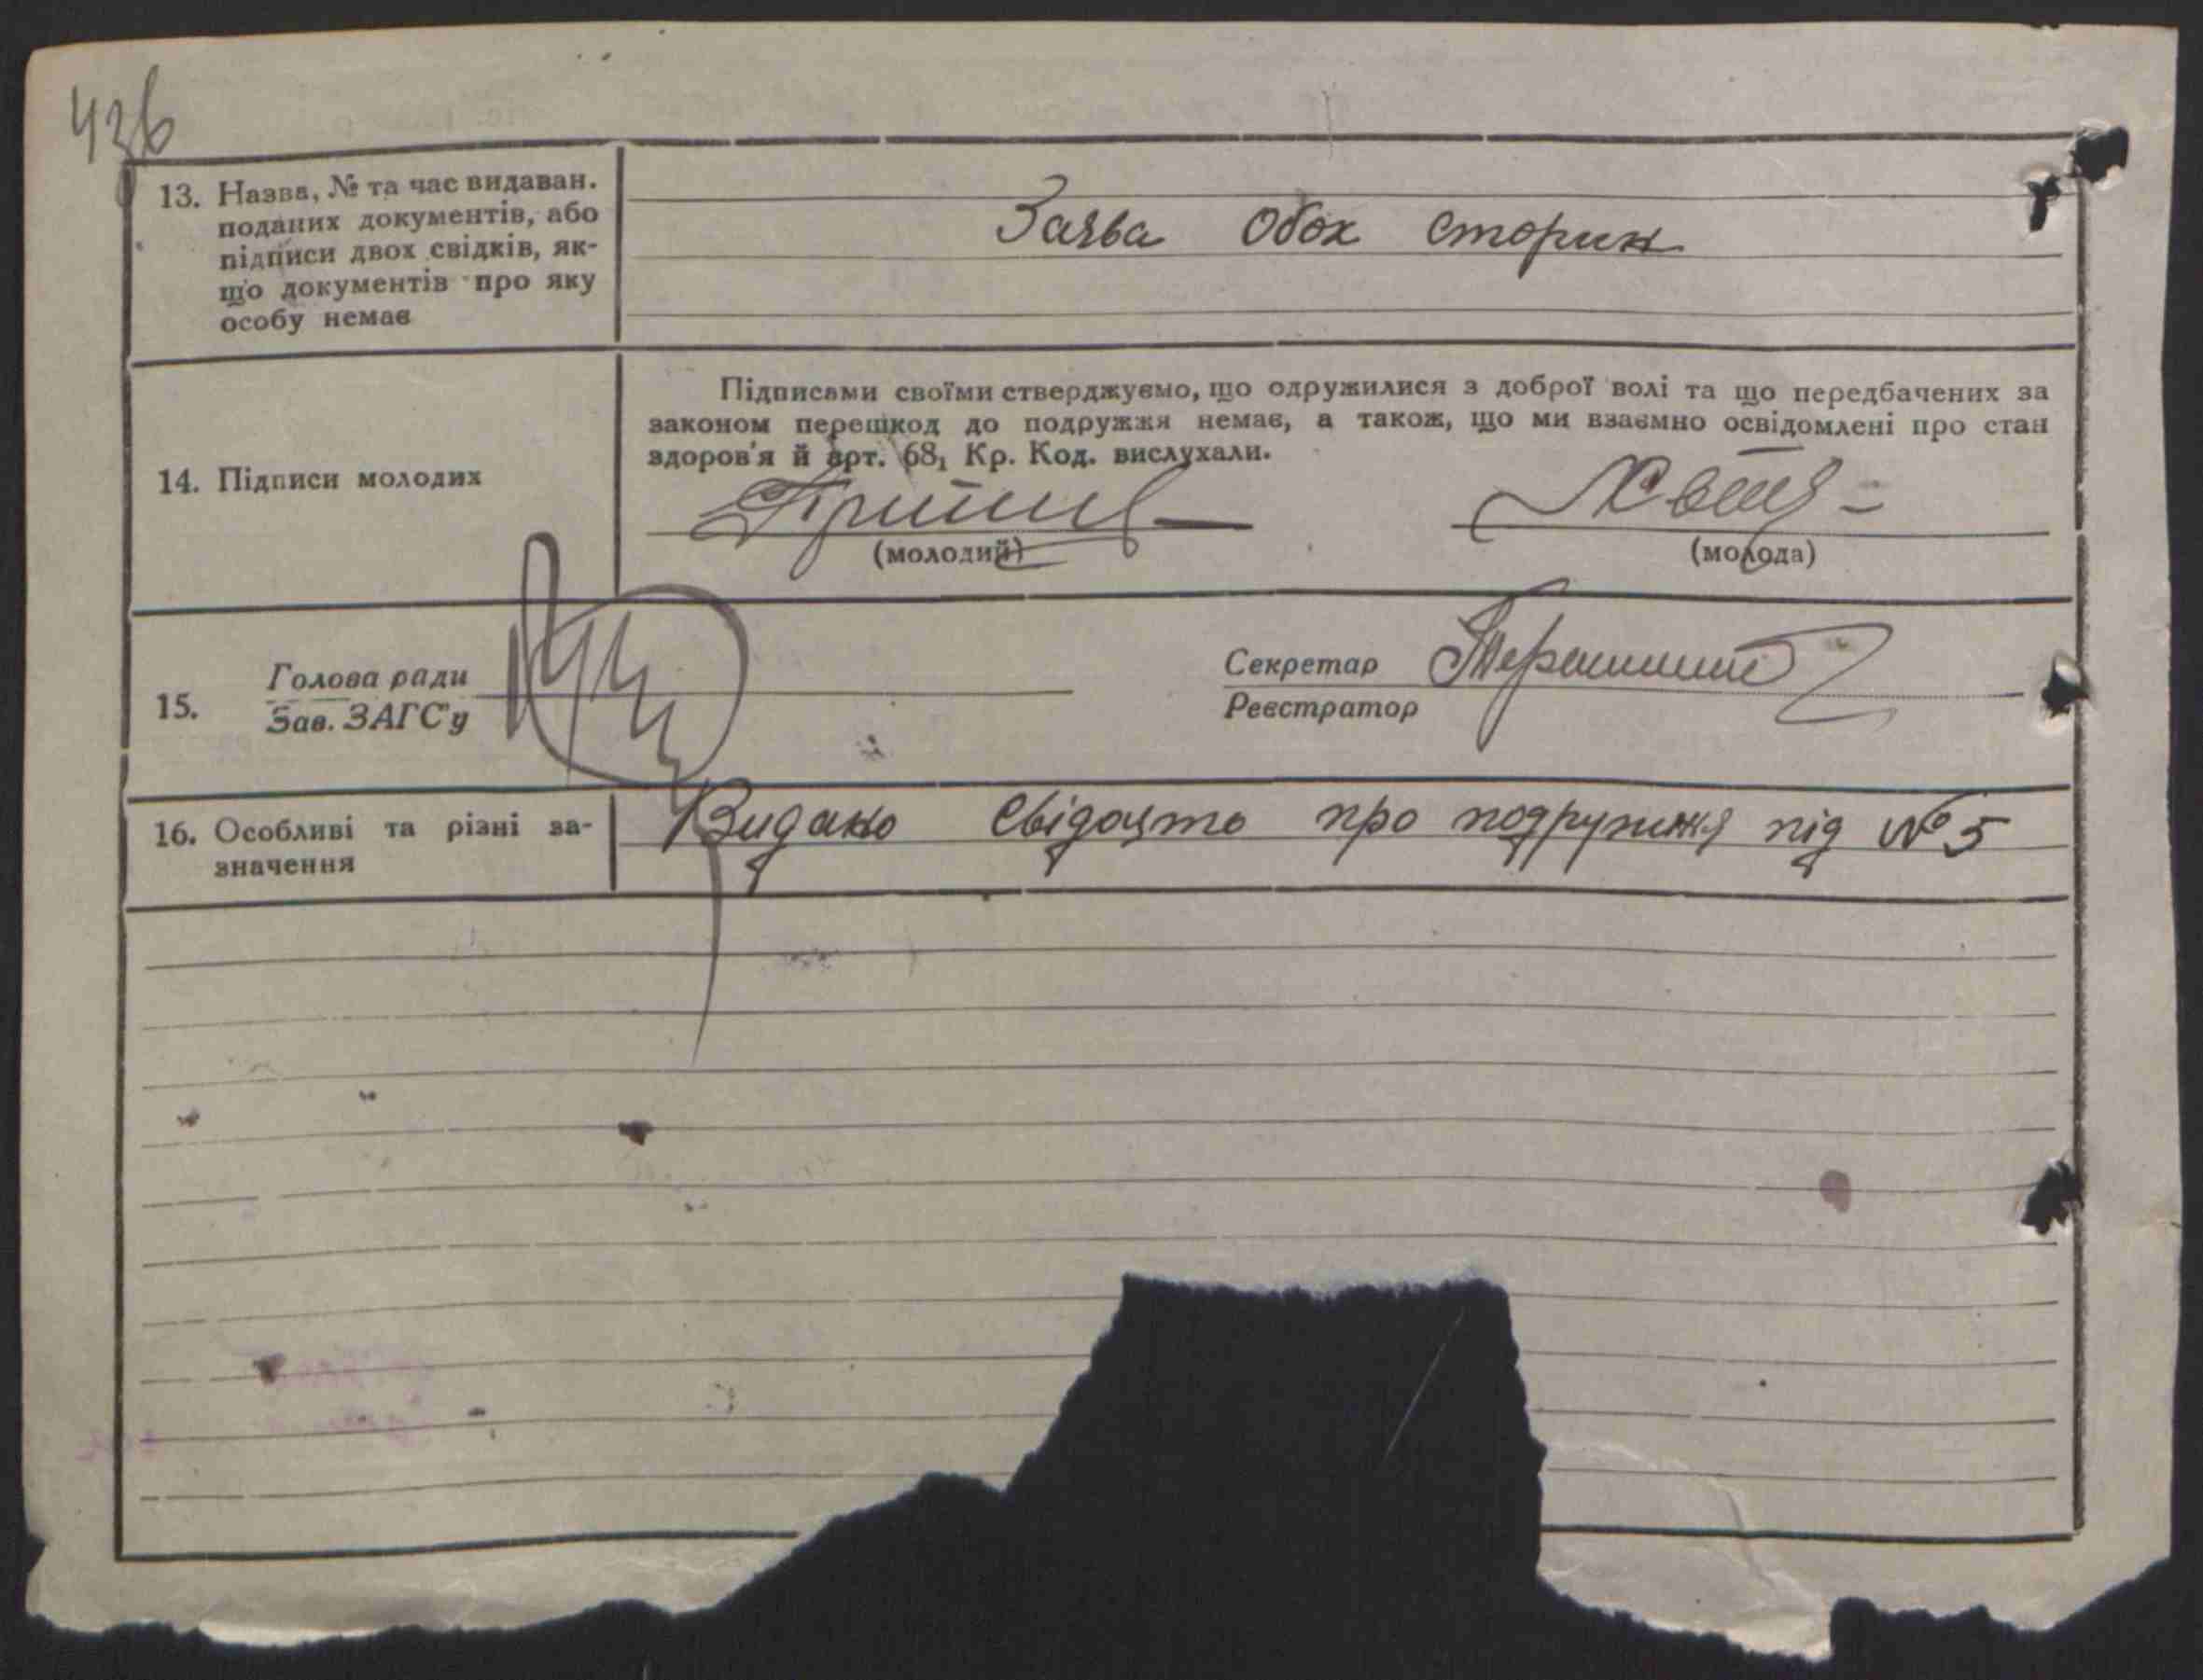 43б
13. Назва, № та час видаван.
поданих документів, або
підписи двох свідків, як-
що документів про яку
особу немає
Заява обох сторин
Підписами своїми стверджуємо, що одружилися з доброї волі та що передбачених за
законом перешкод до подружжя немає, а також, що ми взаємно освідомлені про стан
здоров'я й арт. 68₁ Кр. Код. вислухали.
14. Підписи молодих
(молодий)
(молода)
15.
Голова ради
Зав. ЗАГС'у
Секретар
Реєстратор
16. Особливі та різні за-
значення
Видано свідоцто про подружжя під № 5